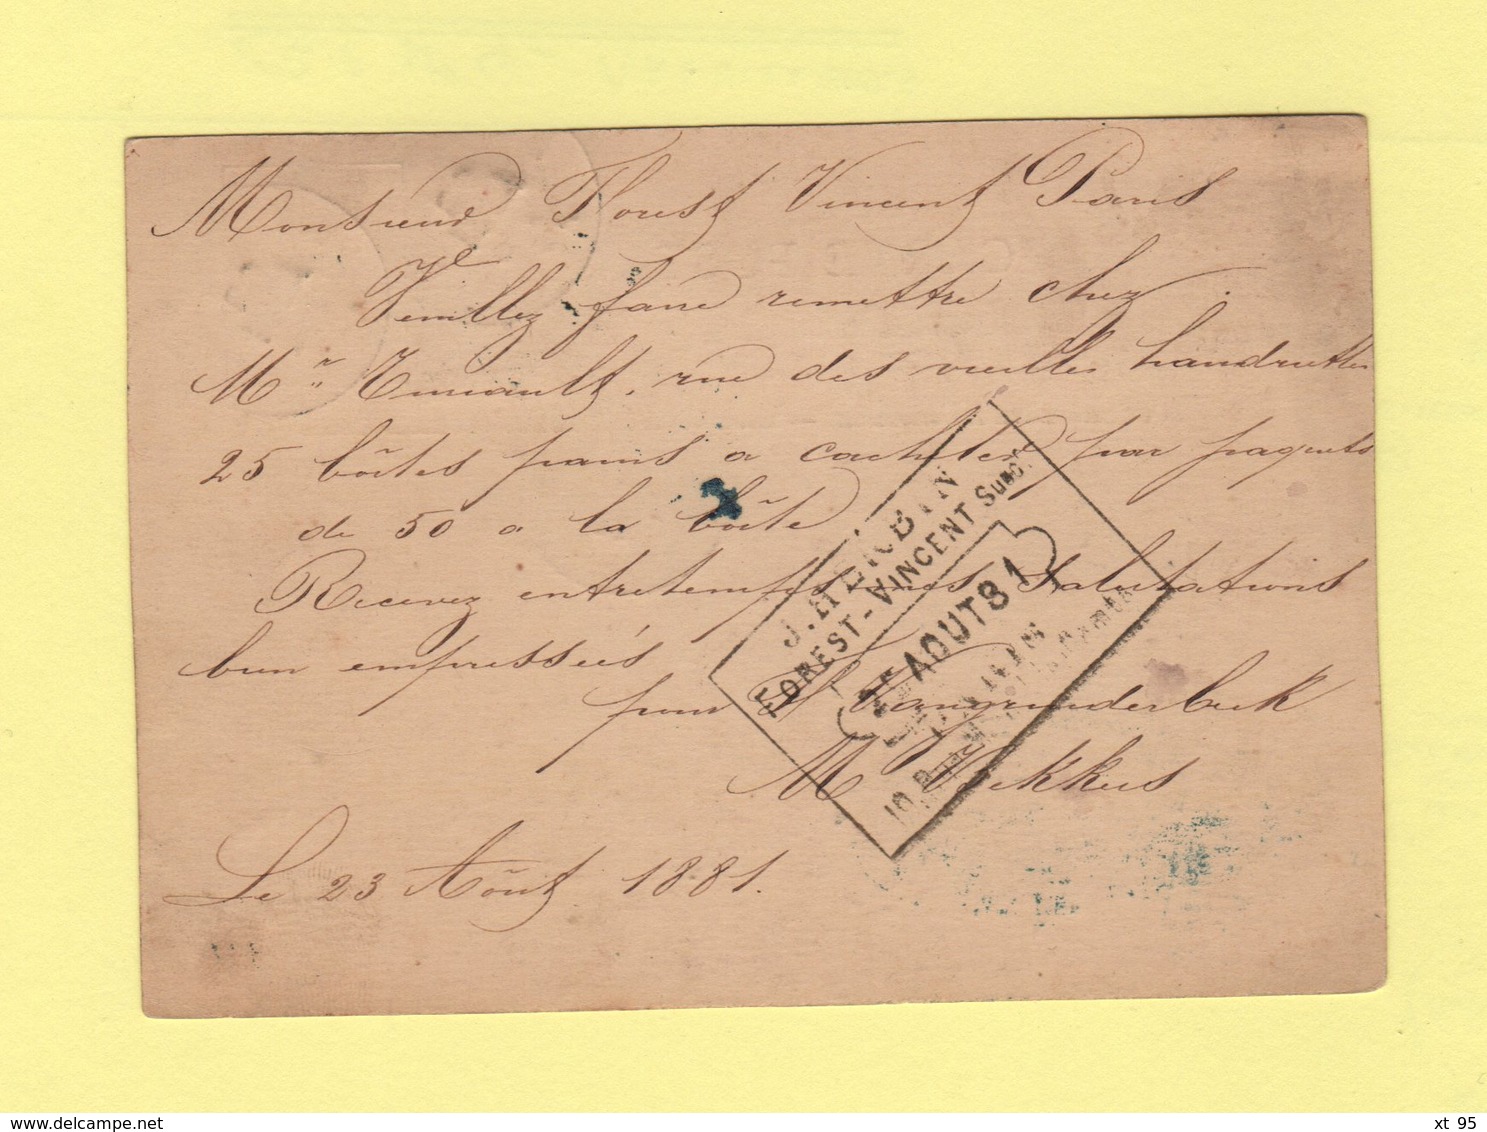 Monsieur Forest Vincent Paris
Veuillez faire remettre chez
Mr rue des vieilles haudriettes
25 boîtes pains a cacheter par paquets
de 50 a la boîte
Recevez entretemps mes salutations
bien empressées
pour H Vangrunderbeek
M
Le 23 Aôut 1881.
J. HERBIN
FOREST-VINCENT Succr
AOUT 81
10
delcampe.net
xt 95